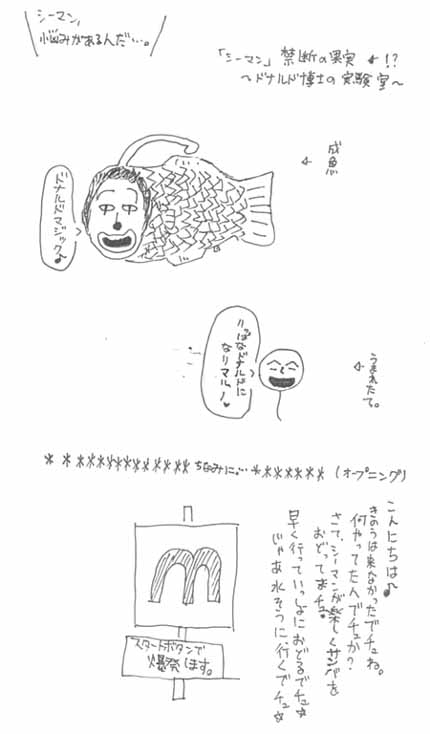 シーマン,
悩みがあるんだ‥‥。
「シーマン」禁断の果実 !?
〜ドナルド博士の実験室〜
成魚
ドナルドマジック♪
うまれたて。
りっぱなドナルドに
なりマル!♥
ちなみに‥ (オープニング)
こんにちは♪
きのうは来なかったでチュね。
何やってたんでチュか?
さて、シーマンが楽しくサンバを
おどってまチュ。
早く行っていっしょにおどるでチュ☆
じゃあ水そうに行くでチュ☆
m
スタートボタンで
爆発します。